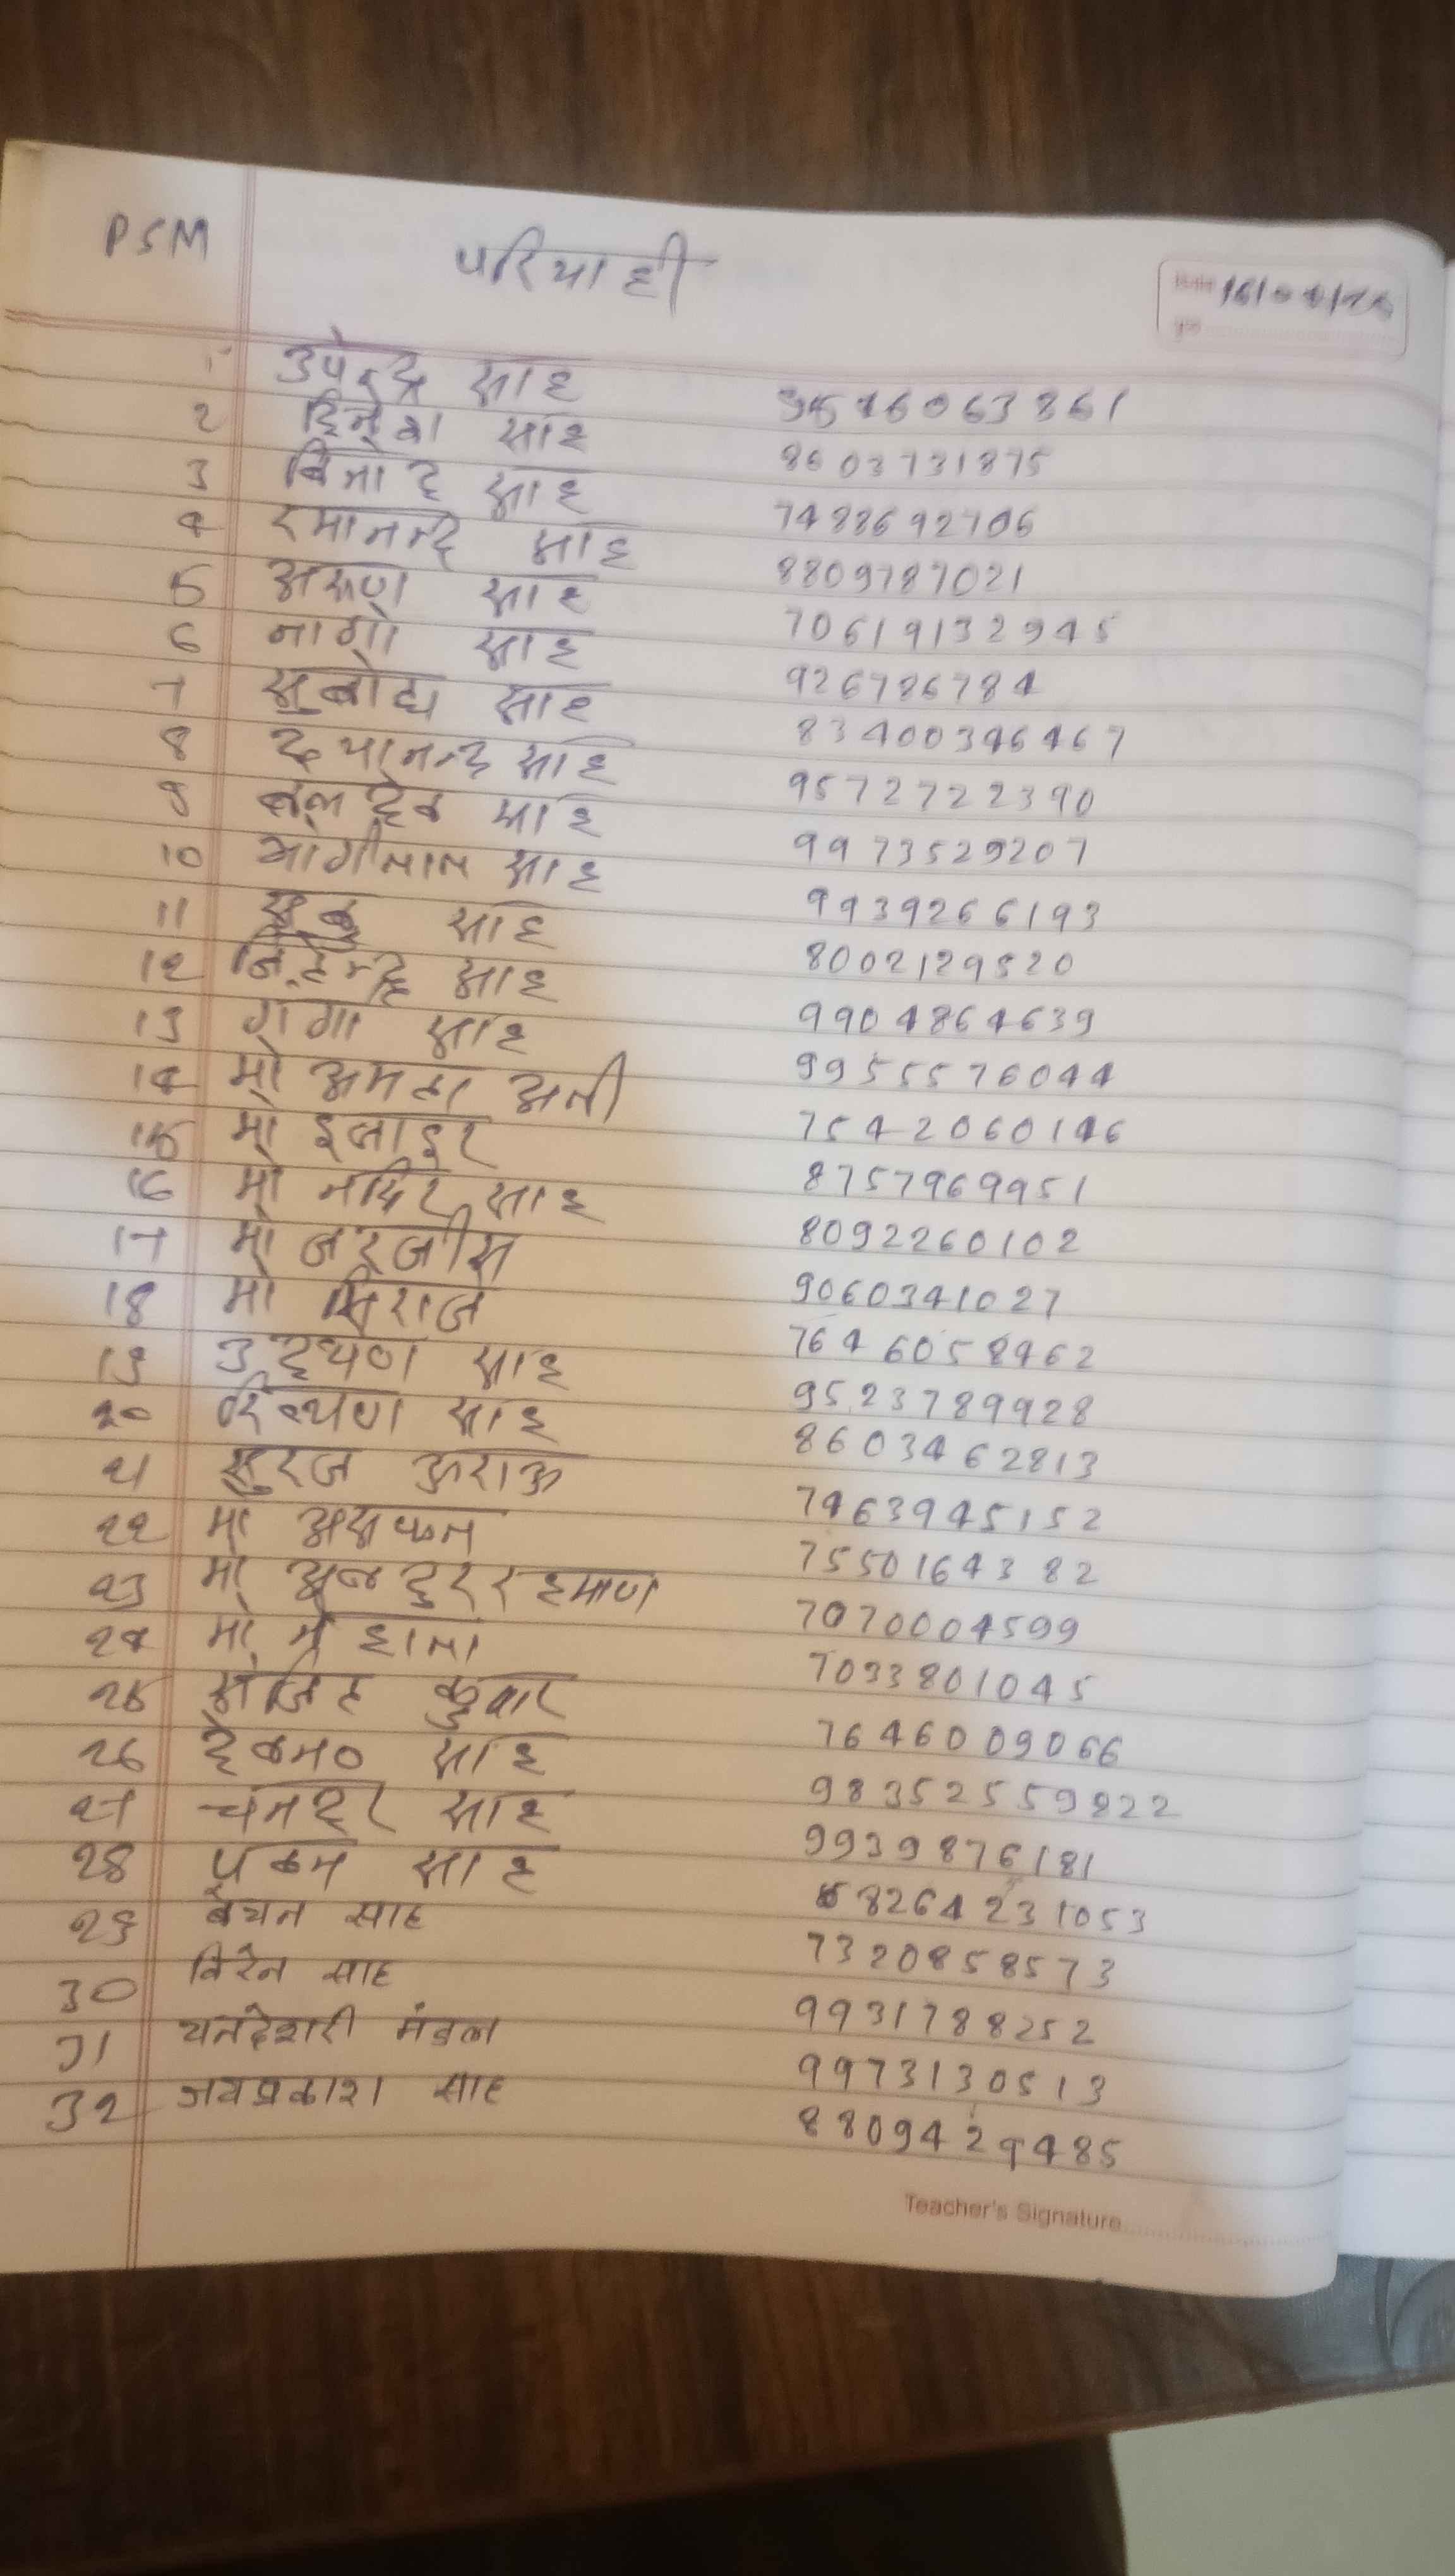 PSM परियाही 16/04/26
1 उपेन्द्र साह 9546063861
2 दिनेश साह 8603731875
3 बिनोद साह 7488692706
4 रमानन्द साह 8809787021
5 अरुण साह 70619132945
6 नागो साह 926786784
7 सुबोध साह 83400346467
8 दयानन्द साह 9572722390
9 बलदेव साह 9973529207
10 साह 9939266193
11 साह 8002129520
12 साह 9904864639
13 गंगा साह 9955576044
14 मो अली 7542060146
15 मो 8757969951
16 मो साह 8092260102
17 मो जरजीस 9060341027
18 मो सिराज 7646058962
19 उदयण साह 9523789928
20 साह 8603462813
21 सुरज 7463945152
22 मो 7550164382
23 मो 7070004599
24 मो 7033801045
25 कुवार 7646009066
26 साह 98352559822
27 साह 9939876181
28 साह 8264231053
29 बेचन साह 7320858573
30 विरेन साह 9931788252
31 मंडल 9973130513
32 जयप्रकाश साह 8809429485
Teacher's Signature